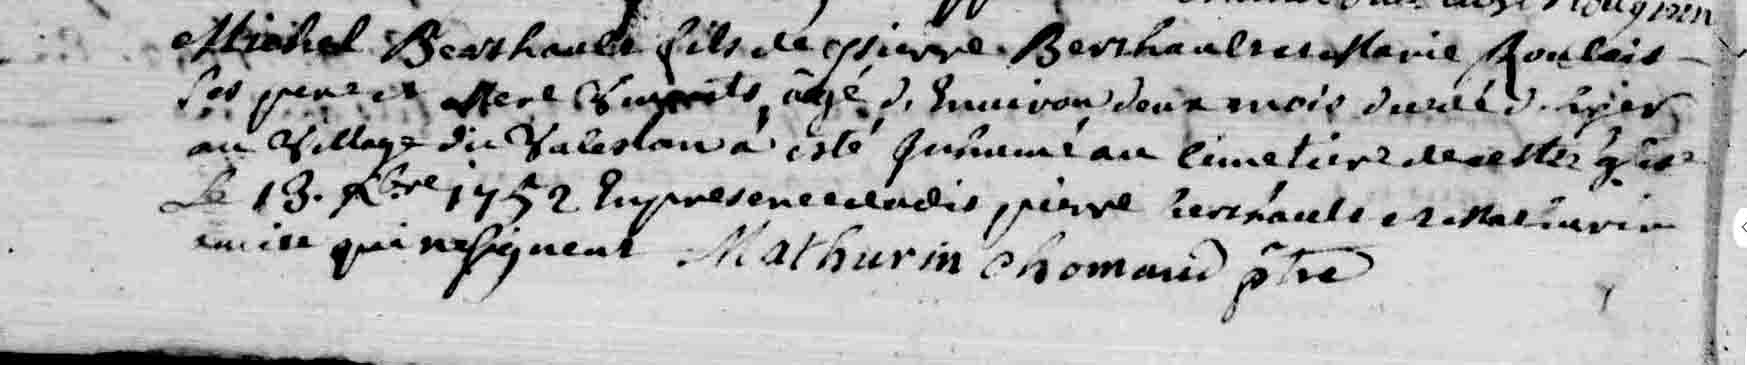 Michel Berthault fils de pierre Berthault et Marie Roulais
ses pere et Mere Vivants, âgé d'Environ deux mois decédé d'hyer
au Village du Valeslan a esté Inhumé au Cimetiere de cette Eglise
Le 13. Xbre 1752 En presence dudit pierre berthault et Mathurin
qui ne signent Mathurin Chomaud ptre